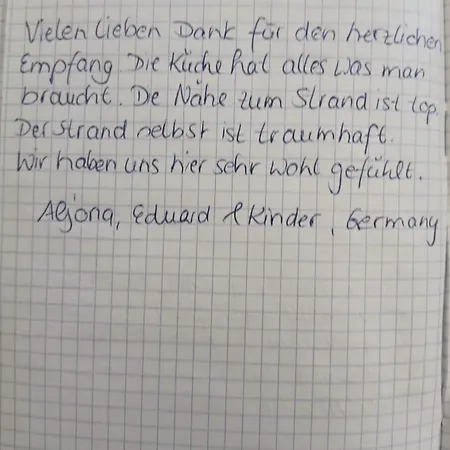 Vielen lieben Dank für den herzlichen
Empfang Die Küche hat alles was man
braucht. De Nähe zum Strand ist top.
Der Strand selbst ist traumhaft.
Wir haben uns hier sehr wohl gefühlt.
Aljona, Eduard & Kinder, Germany